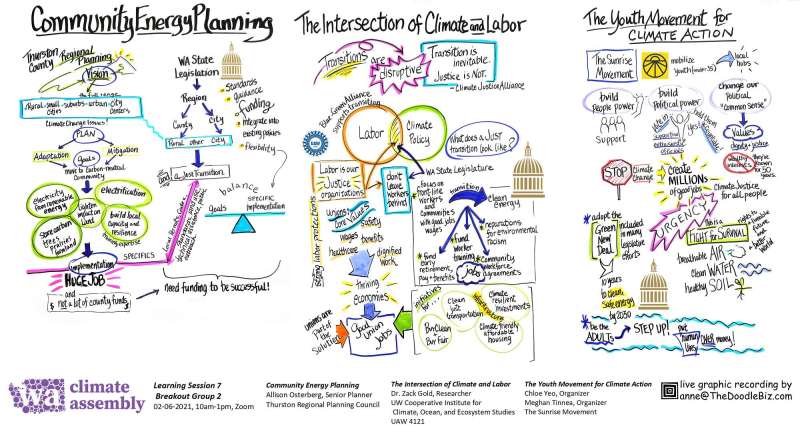 Community Energy Planning
Thurston Regional Planning
County
Vision
Rural-small-suburbs-urban-city
cities
centers
Climate Change Issues!
PLAN
Adaptation
Mitigation
goals
move to Carbon-neutral
Community
electricity
from renewable
energy
electrification
lighten
impact on
land
build local
capacity and
resilience
training expertise
store carbon
trees, prairies
farmland
SPECIFICS
implementation
HUGE JOB
and
not a lot of county funds
need funding to be successful!
WA State
Legislation
Standards
Guidance
Funding
Integrate into
existing policies
Flexibility
Region
County
City
Rural other City
and
a Just Transition
balance
goals
SPECIFIC
implementation
The Intersection of Climate and Labor
Transitions are disruptive
Transition is
inevitable.
Justice is Not.
- Climate Justice Alliance
Blue Green Alliance
supports transition
Labor
Climate
Policy
What does a JUST
transition look like?
UAW
Labor is our
Justice
organizations
don't
leave
workers
behind
WA State Legislature
strong labor protections
unions
core values
wages
safety
benefits
healthcare
dignified
work
Focus on
front-line
workers
and
communities
with good jobs
wages
transition
Clean
Energy
reparations
for environmental
racism
fund
early
retirement,
pay + benefits
fund
worker
training
community
workforce
agreements
Jobs
thriving
economies
unions are
part of
the
Solution
good
union
jobs
initiatives
for...
Clean
just
transportation
infrastructure
Climate
resilient
investments
Buy Clean
Buy Fair
Climate friendly
affordable
housing
The Youth Movement for
CLIMATE ACTION
The Sunrise
Movement
mobilize
youth (under 35)
local
hubs
build
People power
SUPPORT
build
Political power
vote in
supporting
enthusiastic
officials
hold them
accountable
yes!
change our
Political
"common sense"
Values
dignity + justice
wealthy interests
they've known
for 50
years
STOP
Climate
Change
Create
MILLIONS
of good jobs
Climate Justice
for all people
URGENCY
adopt the
Green
New
Deal
included in
many
legislative
efforts
This is a
FIGHT for SURVIVAL
right to
livable
future
and
better
world
10 years
to clean,
safe energy
by 2030
breathable AIR
clean WATER
healthy SOIL
be the
ADULTS
STEP UP!
put
human
lives
OVER money!
wa climate
assembly
Learning Session 7
Breakout Group 2
02-06-2021, 10am-1pm, Zoom
Community Energy Planning
Allison Osterberg, Senior Planner
Thurston Regional Planning Council
The Intersection of Climate and Labor
Dr. Zack Gold, Researcher
UW Cooperative Institute for
Climate, Ocean, and Ecosystem Studies
UAW 4121
The Youth Movement for Climate Action
Chloe Yeo, Organizer
Meghan Tinnea, Organizer
The Sunrise Movement
live graphic recording by
anne@TheDoodleBiz.com